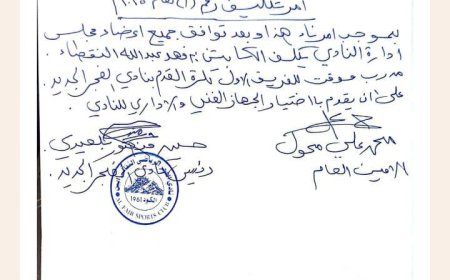 أمر تكليف رقم (١) لعام ٢٠٢٥
بموجب امرنا هذا وبعد توافق جميع اعضاء مجلس
ادارة النادي يكلف الكابتن / فهد عبدالله النقطاء
مدرب مؤقت للفريق الاول لكرة القدم بنادي الفجر الجديد.
على ان يقدم باختيار الجهاز الفني والاداري للنادي
محمد علي محول
الامين العام
حسين
رئيس نادي الفجر الجديد.
الكود 1961
AL FAJR SPORTS CLUB